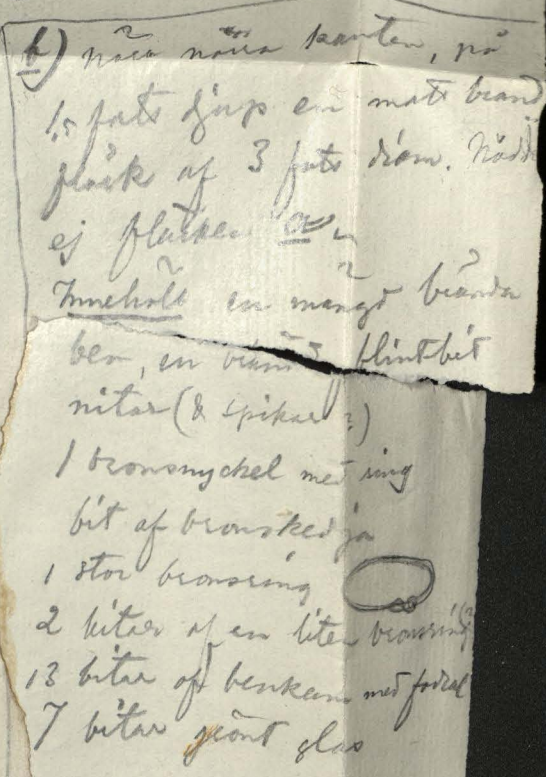 b) Nära norra kanten, på
1,5 fots djup en matt brand
fläck af 3 fots diam. Nådde
ej fläcken a
Innehöll en mängd brända
ben, en bränd flintbit
nitar (& spikar?)
1 bronsnyckel med ring
bit af bronskedja
1 stor bronsring
2 bitar af en liten bronsring
13 bitar af benkam med fodral
7 bitar grönt glas